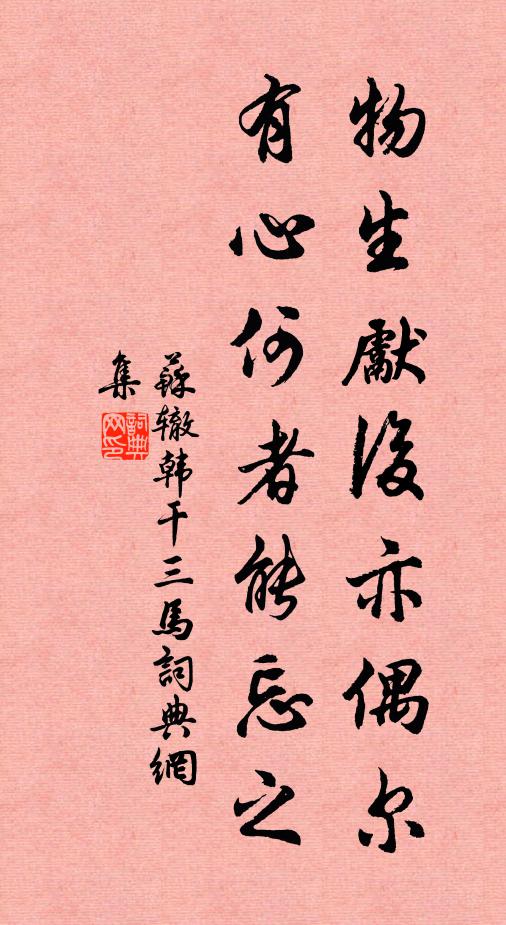 物生獻後亦偶尔
有心何者能忘之
蘇辙韩干三馬詞典網
集
詞典
网印